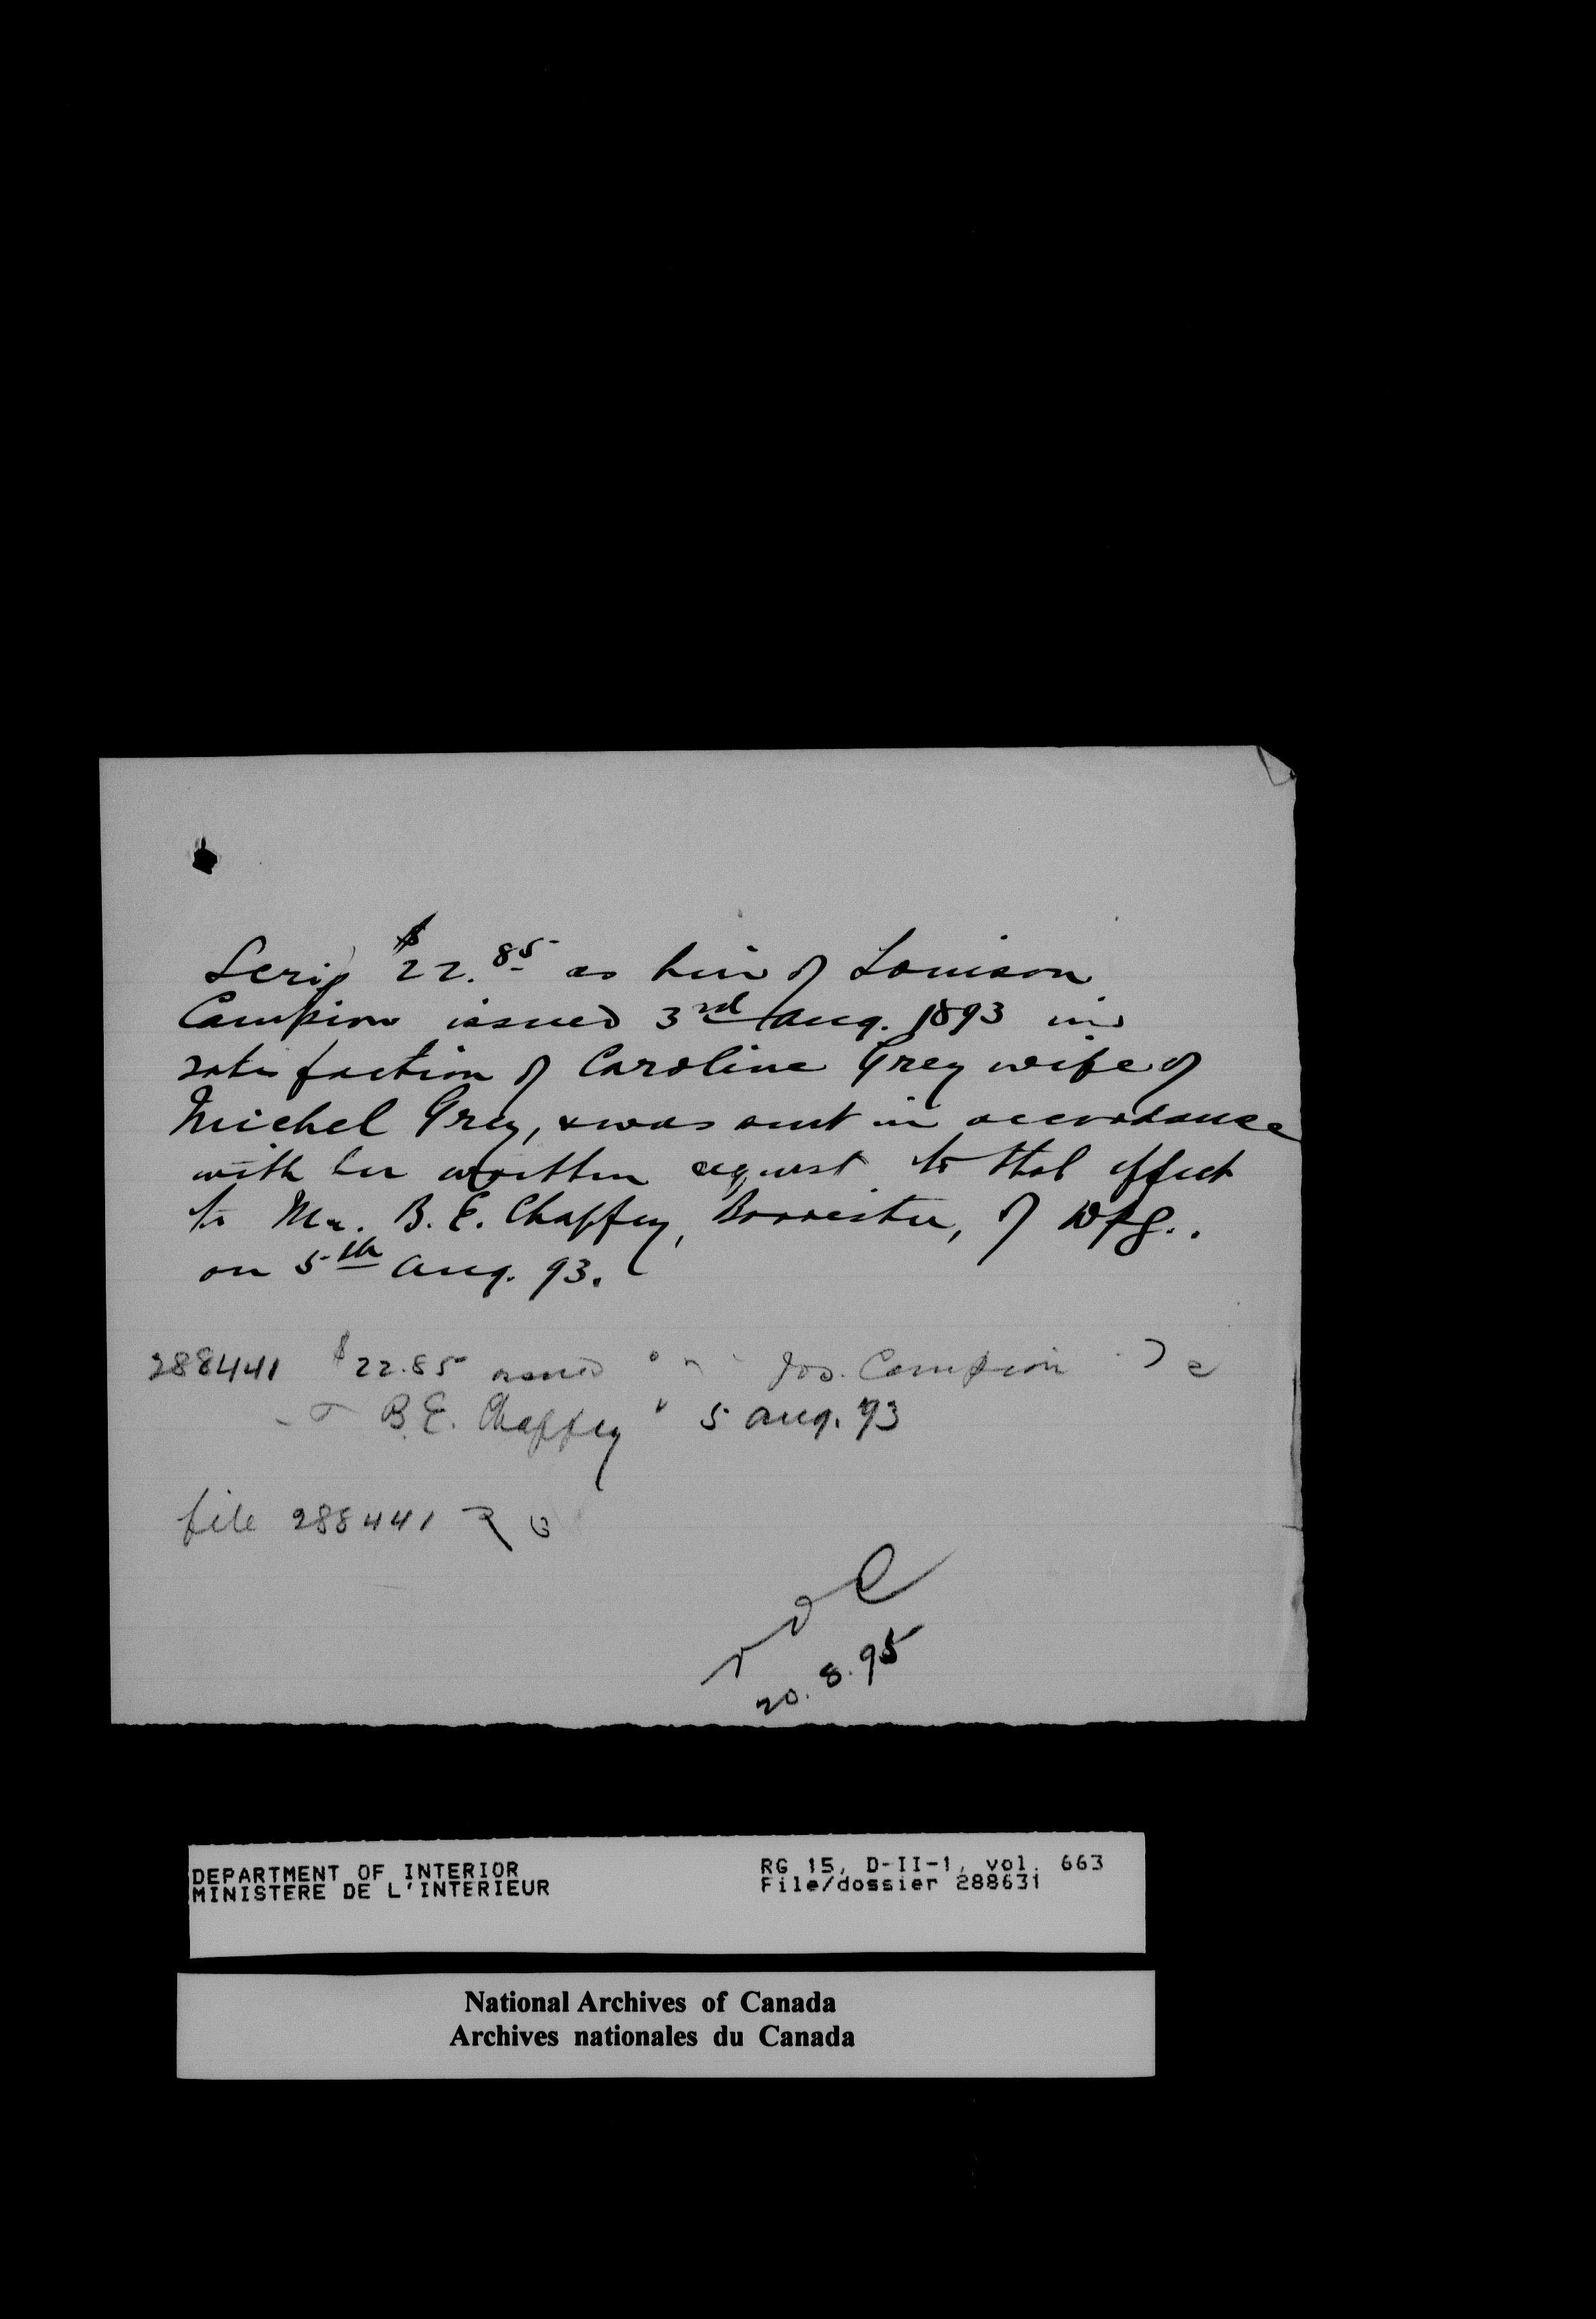 Scrip $22.85 as heir of Louison
Campion issued 3rd Aug. 1893 in
satisfaction of Caroline Grey wife of
Michel Grey, & was sent in accordance
with her written request to that effect
to Mr. B. E. Chaffey, Barrister, of Wpg..
on 5th Aug. 93.
288441 $22.85 issued Jos. Campion
B. E. Chaffey " 5 Aug. 93
file 288441
20.8.95
DEPARTMENT OF INTERIOR
MINISTERE DE L'INTERIEUR
RG 15, D-II-1, vol. 663
File/dossier 288631
National Archives of Canada
Archives nationales du Canada